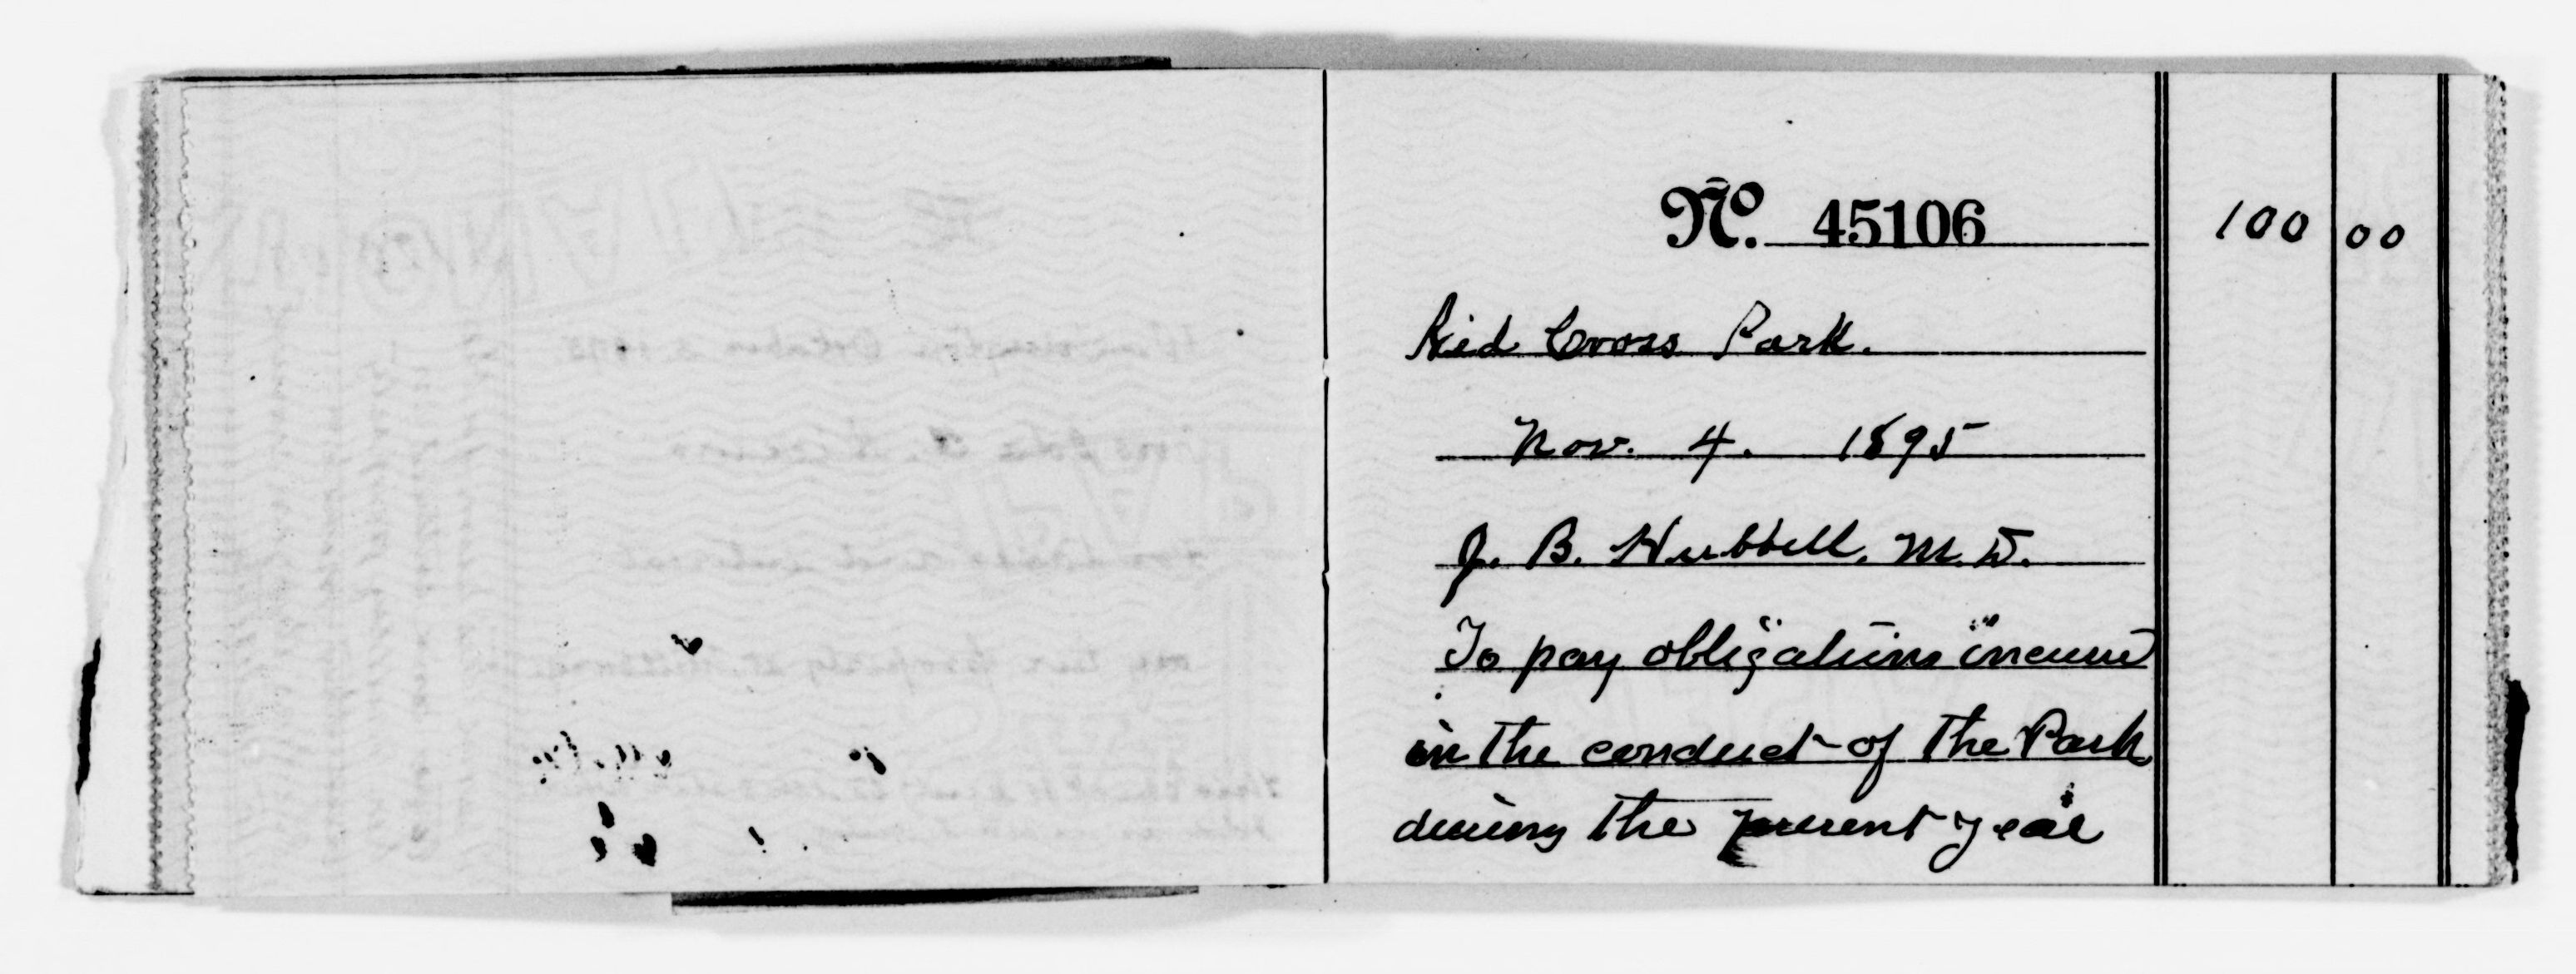 No. 45106 100 00
Red Cross Park.
Nov. 4. 1895
J. B. Hubbell. M.D.
To pay obligations incurred
in the conduct of the Park
during the present year